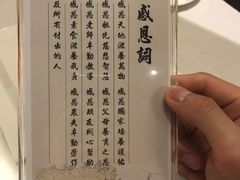 感恩詞
感恩天地滋養萬物
感恩國家培養護佑
感恩祖先誠養萬智
感恩父母養育之恩
感恩老師辛勤教導
感恩朋友關心幫助
感恩素食滋養我身
感恩農夫辛勤勞作
及所有付出的人